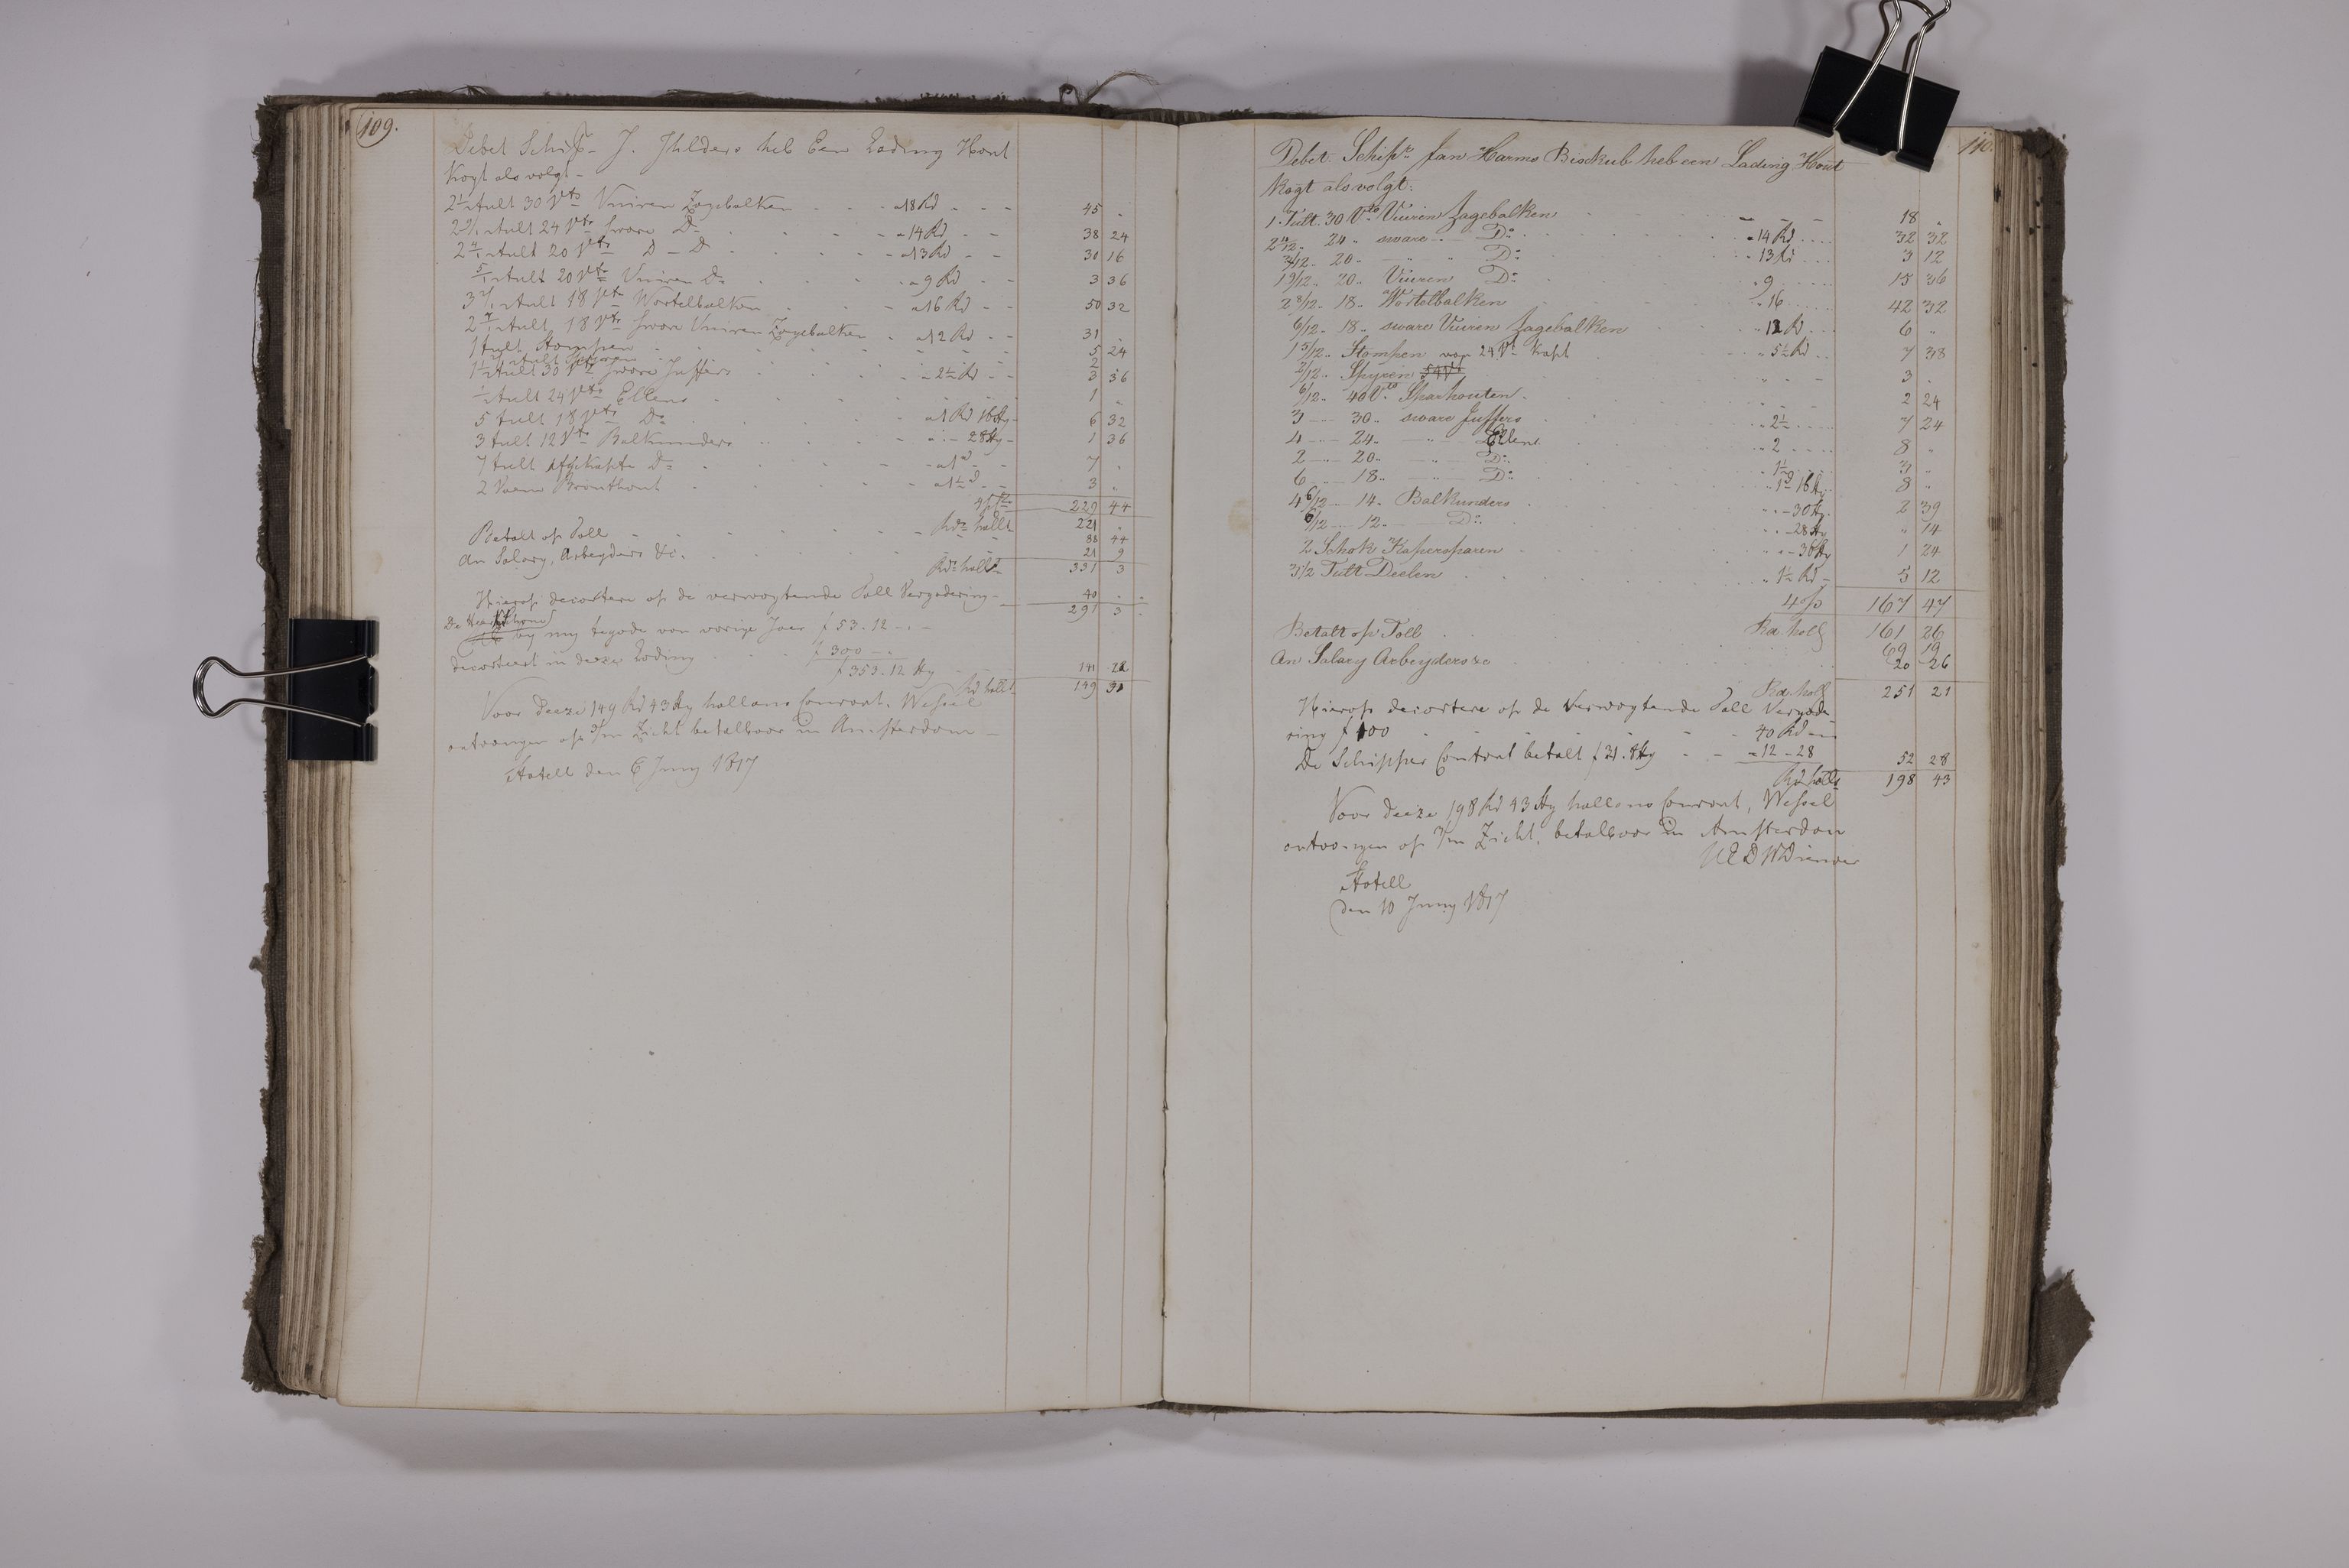 109.
Debet Schipr J. Jhlders heb Een Lading Hout
Kogt als volgt -
2½ tult 30 Vts Vuiren Zagebalken - - - a 18 Rd - - - 45 "
tult 24 Vts sware Do - - a 14 Rd - - 38 24
tult 20 Vts D - Do - - a 13 Rd - - 30 16
tult 20 Vts Vuiren Do - - a 9 Rd - - 3 36
tult 18 Vts Wortelbalken - - a 16 Rd - - 50 32
tult 18 Vts sware Vuiren Zagebalken - a 12 Rd - - 31 "
1 tult Stompen - - 5 24
tult Spieren - - 2
1½ tult 30 Vts sware Juffers - - a 2½ Rd - - 3 36
½ tult 24 Vts Ellens - - 1 "
5 tult 18 Vts Do - - a 1 Rd 16 Sty - 6 32
3 tult 12 Vts Balkunders - - a - 28 Sty - 1 36
7 tult Afgekapte Do - - a 1 d - 7 "
2 Vaem Brenthout - - a 1½ d - - 3 "
229 44
Rds holls 221 "
Betalt op Toll - - 88 44
An Salary, Arbeyders &c. - - 21 9
Rds holls 331 3
Hierop decortere op de verwagtende Toll Vergodering - 40 "
291 3
De
by my tegode van vorige Jaer f 53.12 - -
decorteert in deeze Lading f 300 - -
f 353.12 Sty 141 22
Rd holls 149
Voor deeze 149 Rd 43 Sty hollans Courant, Wessel
ontvangen op 3/m Zicht betalbaar in Amsterdam -
Statell den 6 Juny 1817
110.
Debet. Schipr Jan Harms Biskub heb een Lading Hout
Kogt als volgt:
1. Tult. 30 Vts Vuiren Zagebalken - - - 18 "
24 " sware " Do - - 14 Rd - - 32 32
3/12 " 20 " - " - Do - - 13 Rd - - 3 12
19/12 " 20 " Vuiren " Do - - 9 - - 15 36
2 8/12 " 18 " Wortelbalken - - 16 - - 42 32
6/12 " 18 " sware Vuiren Zagebalken - - 12 Rd - - 6 "
1 5/12 " Stompen van 24 Vt kapt - - 5½ Rd - - 7 38
2/12 " Spyren - - 3 "
6/12 " 40 Vts Sparhouten - - 2 24
3 - " 30 " sware Juffers - - 2½ - - 7 24
4 - " 24 " - " - Ellens - - 2 - - 8 "
2 - " 20 " - " - Do - - 1½ - - 3 "
6 - " 18 " - " - Do - - 1 Rd 16 Sty 8 "
4 6/12 " 14 " Balkunders - - 30 Sty 2 39
6/12 " 12 " - Do - - 28 Sty " 14
2 Schok Kapersparen - - 36 Sty 1 24
3½ Tult Deelen - - 1½ Rd - 5 12
167 47
Rd. holls 161 26
Betalt op Toll 69 19
An Salary Arbeyders &c 20 26
Rd. holls 251 21
Hierop decortere op de Verwagtende Toll Vergode-
ring f 100 - - 40 Rd -
De Schipper Contant betalt f 31.8 Sty - - 12 - 28 52 28
Rd holls 198 43
Voor deeze 198 Rd 43 Sty hollans Courant, Wessel
ontvangen op 3/m Zicht, betalbaar in Amsterdam
UEDWDienaer
Statell
den 10 Juny 1817